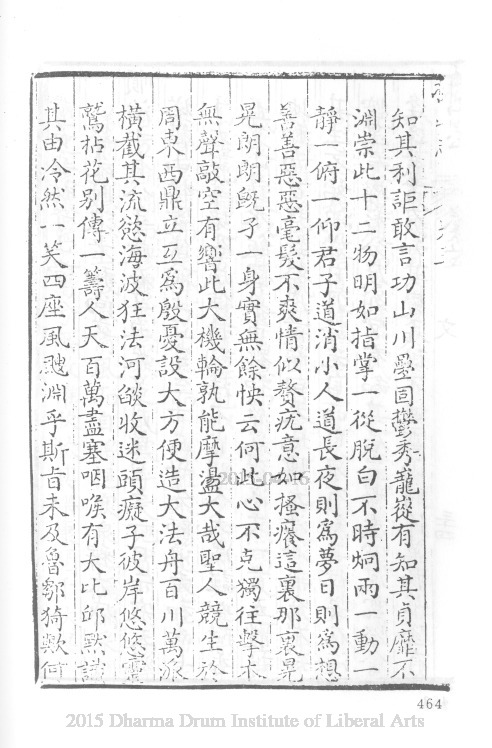 知其利詎敢言功山川壘固鬱秀巃嵸有知其貞靡不
淵崇此十二物明如指掌一從脫白不時炯兩一動一
靜一俯一仰君子道消小人道長夜則爲夢日則爲想
善善惡惡毫髮不爽情似贅疣意如搔癢這裏那裏晃
晃朗朗旣孑一身實無餘怏云何此心不克獨往擊木
無聲敲空有響此大機輪孰能摩盪大哉聖人競生於
周東西鼎立互爲殷憂設大方便造大法舟百川萬派
橫截其流慾海波狂法河燄收迷頭癡子彼岸悠悠靈
鷲拈花別傳一籌人天百萬盡塞咽喉有大比邱默識
其由冷然一笑四座風颼淵乎斯旨未及魯鄒猗歟何
464
2015 Dharma Drum Institute of Liberal Arts